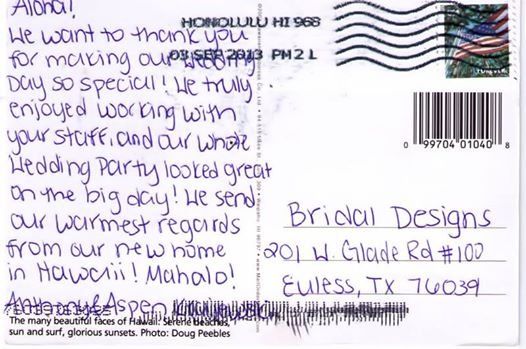 Aloha!
We want to thank you
for making our wedding
Day so special! We truly
enjoyed working with
your staff, and our whole
Wedding Party looked great
on the big day! We send
our warmest regards
from our new home
in Hawaii! Mahalo!
Anthony & Aspen
The many beautiful faces of Hawaii: Serene beaches,
sun and surf, glorious sunsets. Photo: Doug Peebles
HONOLULU HI 968
03 SEP 2013 PM 2 L
FOREVER
0 99704 01040 8
Bridal Designs
201 W. Glade Rd #100
Euless, TX 76039